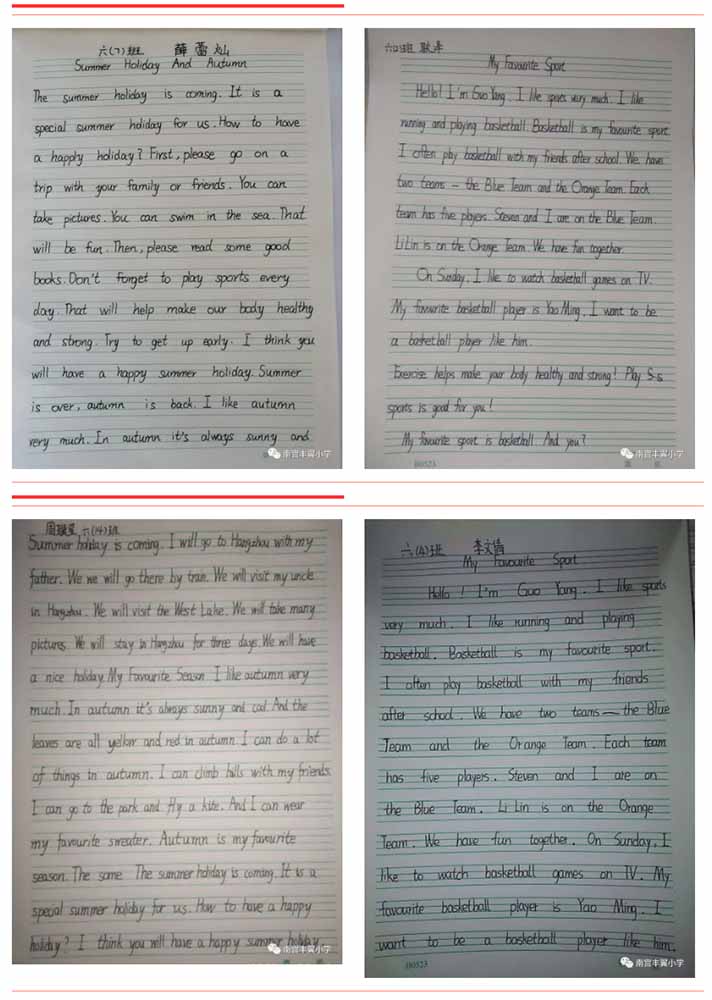 六(7)班 薛蕾灿
Summer Holiday And Autumn
The summer holiday is coming. It is a
special summer holiday for us. How to have
a happly holiday? First, please go on a
trip with your family or friends. You can
take pictures. You can swim in the sea. That
will be fun. Then, please read some good
books. Don't forget to play sports every
day. That will help make our body healthy
and strong. Try to get up early. I think you
will have a happy summer holiday. Summer
is over, autumn is back. I like autumn
very much. In autumn it's always sunny and
南宫丰翼小学
班
My Favourite Sport
Hello! I'm Guo Yang. I like sports very much. I like
running and playing basketball. Basketball is my favourite sport.
I often play basketball with my friends after school. We have
two teams — the Blue Team and the Orange Team. Each
team has five players. Steven and I are on the Blue Team.
Li Lin is on the Orange Team. We have fun together.
On Sunday, I like to watch basketball games on TV.
My favourite basketball player is Yao Ming, I want to be
a basketball player like him.
Exercise helps make your body healthy and strong! Play S-s
sports is good for you!
My favourite sport is basketball. And you?
180523
南宫丰翼小学
六(4)班
Summer holiday is coming. I will go to Hangzhou with my
father. We we will go there by train. We will visit my uncle
in Hangzhou. We will visit the West Lake. We will take many
pictures. We will stay in Hangzhou for three days. We will have
a nice holiday. My Favourite Season I like autumn very
much. In autumn it's always sunny and cool. And the
leaves are all yellow and red in autumn. I can do a lot
of things in autumn. I can climb hills with my friends.
I can go to the park and fly a kite. And I can wear
my favourite sweater. Autumn is my favourite
season. The same The summer holiday is coming. It is a
special summer holiday for us. How to have a happy
holiday? I think you will have a happy summer holiday
南宫丰翼小学
六(4)班 李文倩
My Favourite Sport
Hello! I'm Guo Yang. I like sports
very much. I like running and playing
basketball. Basketball is my favourite sport.
I often play basketball with my friends
after school. We have two teams — the Blue
Team and the Orange Team. Each team
has five players. Steven and I are on
the Blue Team. Li Lin is on the Orange
Team. We have fun together. On Sunday, I
like to watch basketball games on TV. My
favourite basketball player is Yao Ming. I
want to be a basketball player like him.
180523
南宫丰翼小学